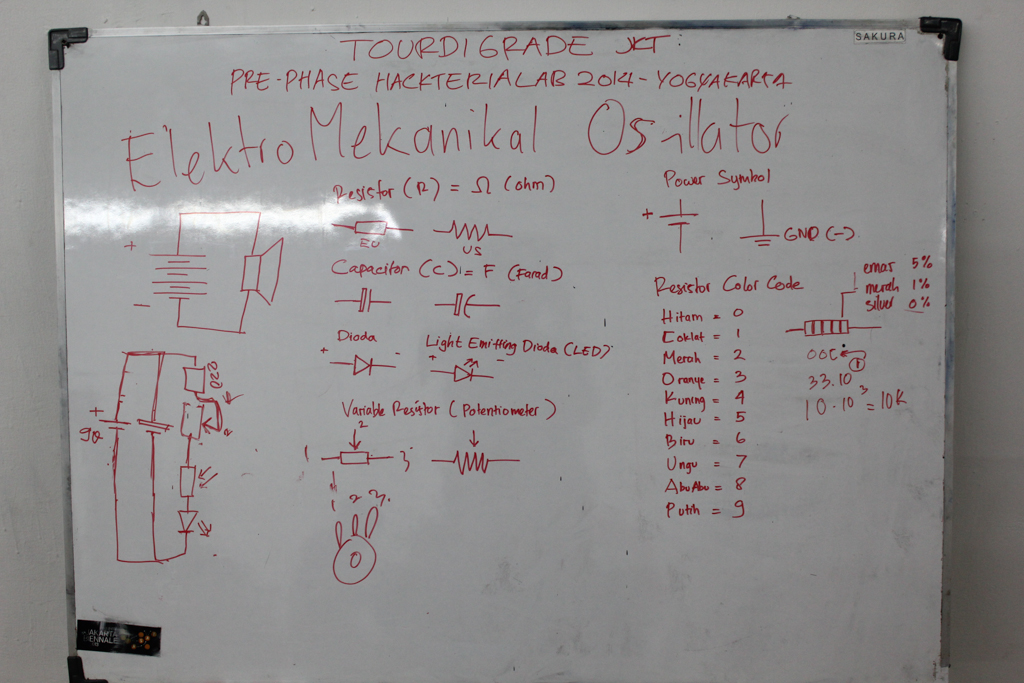 SAKURA
TOURDIGRADE JKT:
PRE-PHASE HACKTERIALAB 2014 - YOGYAKARTA
ElektroMekanikal Osillator
Resistor (R) = Ω (ohm)
EU
US
Capacitor (C) = F (Farad)
Dioda
+ -
Light Emitting Dioda (LED)
+ -
Variable Resistor (Potentiometer)
2
1 3
1 2 3
+
-
220
+
9v
Power Symbol
+
GND (-)
Resistor Color Code
emas 5%
merah 1%
silver 0%
Hitam = 0
Coklat = 1
Merah = 2
Oranye = 3
Kuning = 4
Hijau = 5
Biru = 6
Ungu = 7
AbuAbu = 8
Putih = 9
1
33.10
10.10³ = 10K
JAKARTA
BIENNALE